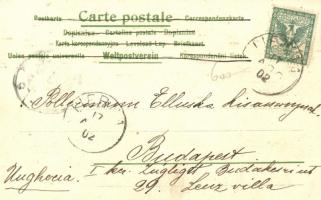 Postkarte Carte postale Correspondenzkarte
Dopisnice Cartolina postale Dopisnica
Karta korrespondencyjna Levelező-Lap Briefkaart
Union postale universelle Weltpostverein
02
17
02
Elluska kisasszonynak
Budapest
Ungheria. I ker. Zugliget Budakeszi út
29. Lenz villa